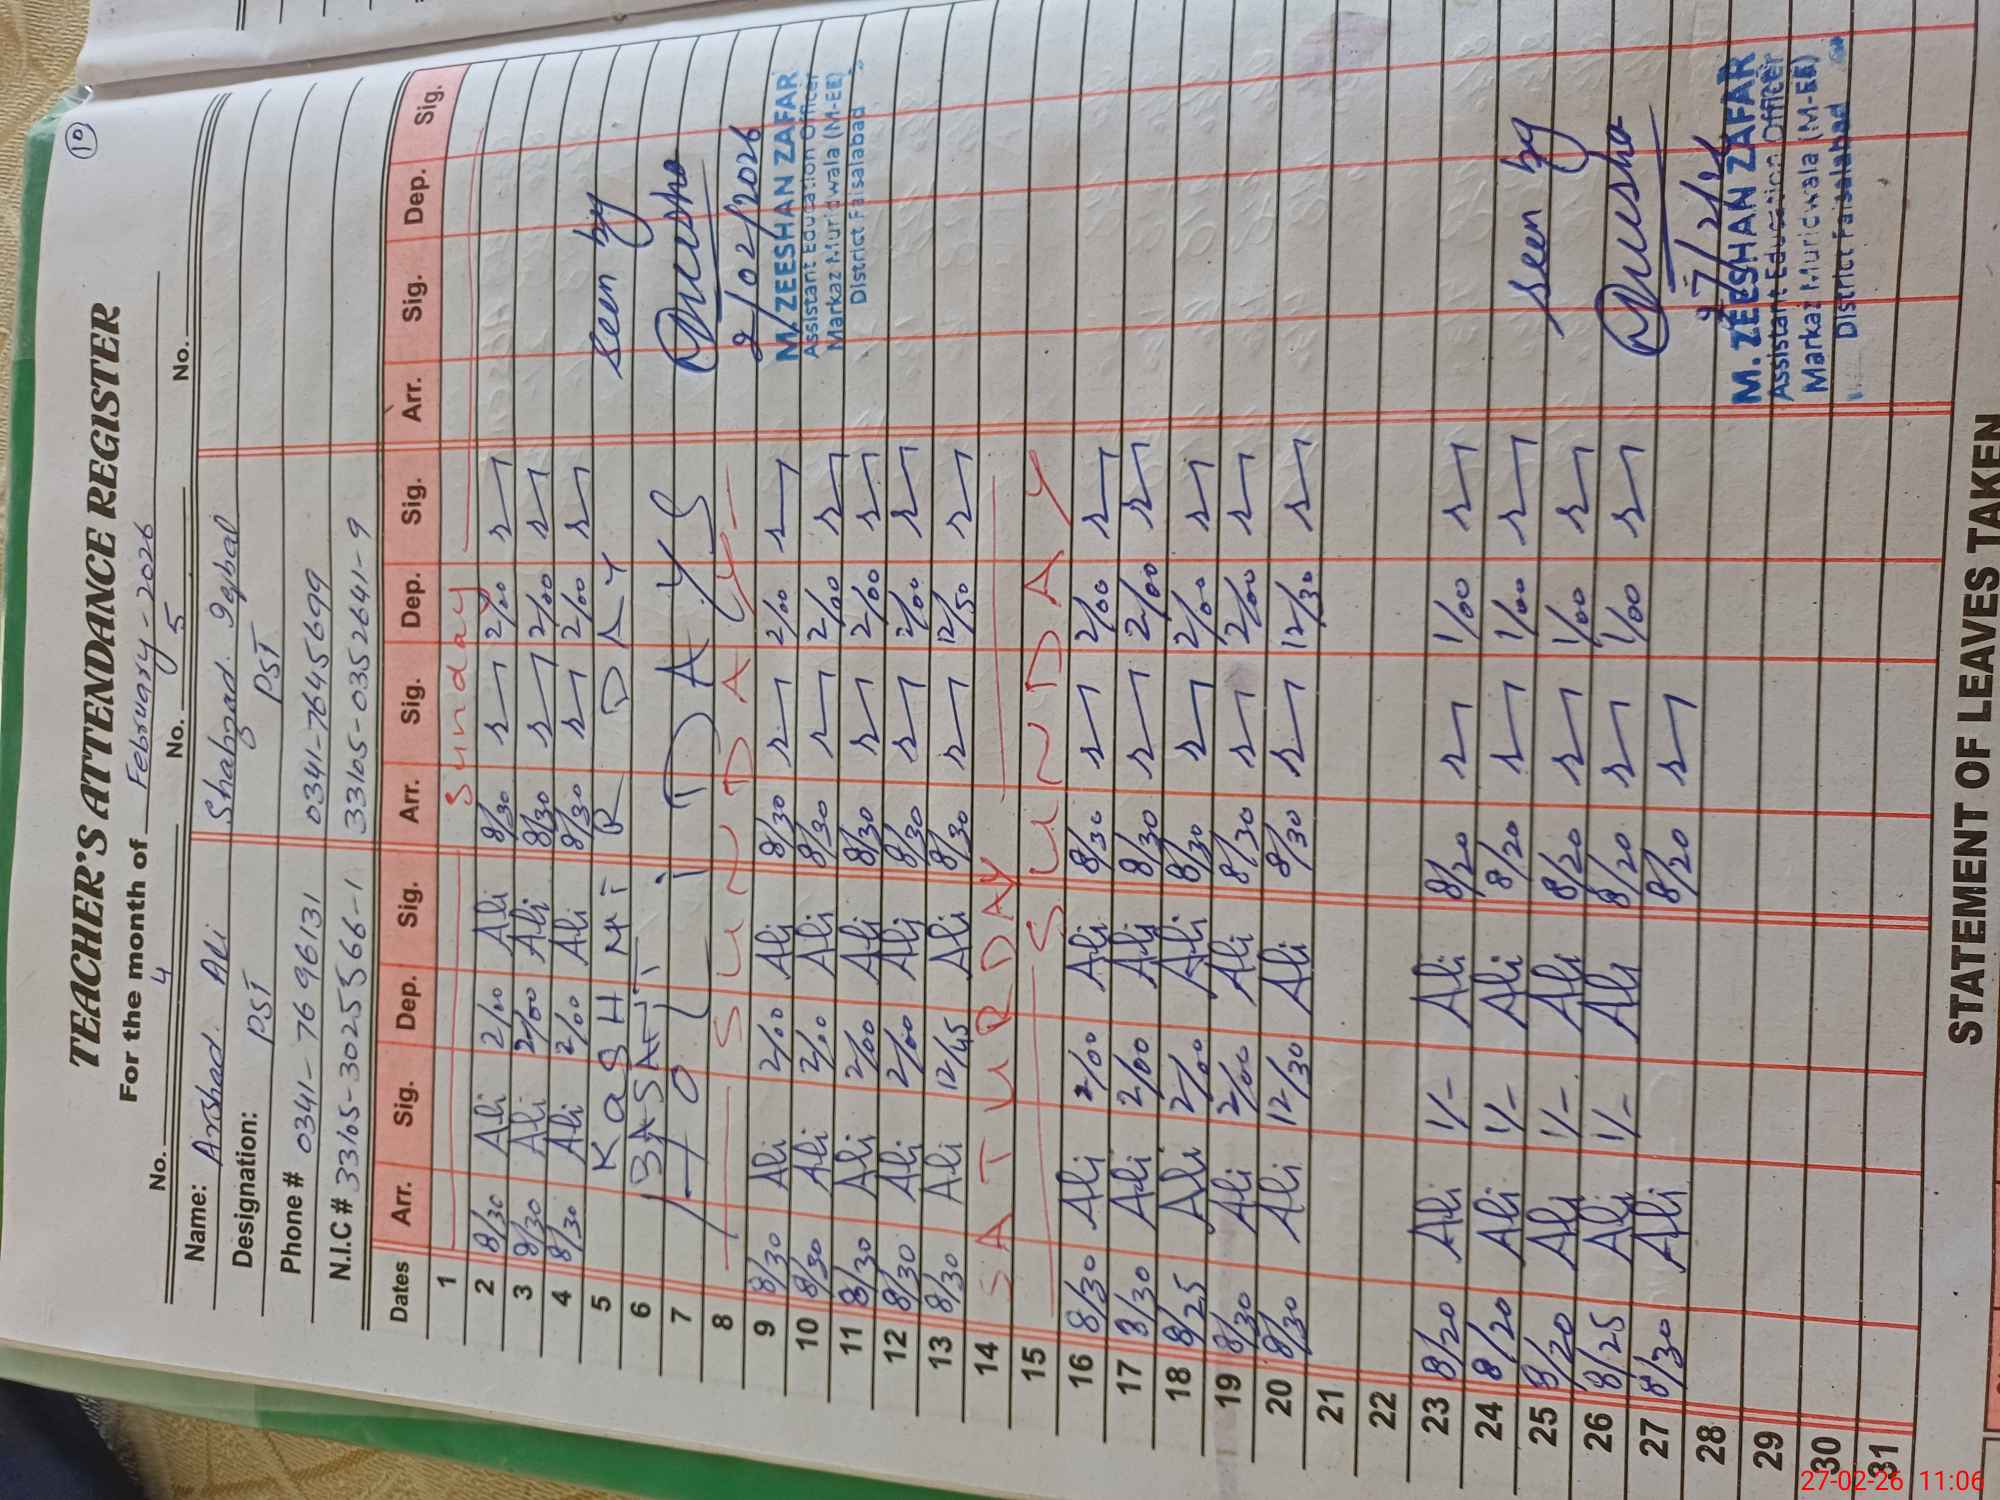 10
TEACHER'S ATTENDANCE REGISTER
For the month of February-2026
No. 4 No. 5 No.
Name: Arshad Ali Shahzad Iqbal
Designation: PST PST
Phone # 0341-7696131 0341-7645699
N.I.C # 33105-3025566-1 33105-0352641-9
Dates Arr. Sig. Dep. Sig. Arr. Sig. Dep. Sig. Arr. Sig. Dep. Sig.
1 Sunday
2 8/30 Ali 2/00 Ali 8/30 2/00
3 8/30 Ali 2/00 Ali 8/30 2/00
4 8/30 Ali 2/00 Ali 8/30 2/00
5 KASHMIR DAY seen by
6 BASANT
7 HOLIDAYS 2/02/2026
8 SUNDAY
9 8/30 Ali 2/00 Ali 8/30 2/00 M. ZEESHAN ZAFAR
10 8/30 Ali 2/0 Ali 8/30 2/00 Assistant Education Officer
Markaz Muridwala (M-EE)
11 8/30 Ali 2/00 Ali 8/30 2/00 District Faisalabad
12 8/30 Ali 2/00 Ali 8/30 2/00
13 8/30 Ali 12/45 Ali 8/30 12/50
14 SATURDAY
15 SUNDAY
16 8/30 Ali 2/00 Ali 8/30 2/00
17 8/30 Ali 2/00 Ali 8/30 2/00
18 8/25 Ali 2/00 Ali 8/30 2/00
19 8/30 Ali 2/00 Ali 8/30 2/00
20 8/30 Ali 12/30 Ali 8/30 12/30
21
22
23 8/20 Ali 1/- Ali 8/20 1/00
24 8/20 Ali 1/- Ali 8/20 1/00
25 8/20 Ali 1/- Ali 8/20 1/00 seen by
26 8/25 Ali 1/- Ali 8/20 1/00
27 8/30 Ali 8/20
28 27/2/26
29 M. ZEESHAN ZAFAR
Assistant Education Officer
30 Markaz Muridwala (M-EE)
31 District Faisalabad
STATEMENT OF LEAVES TAKEN
27-02-26 11:06